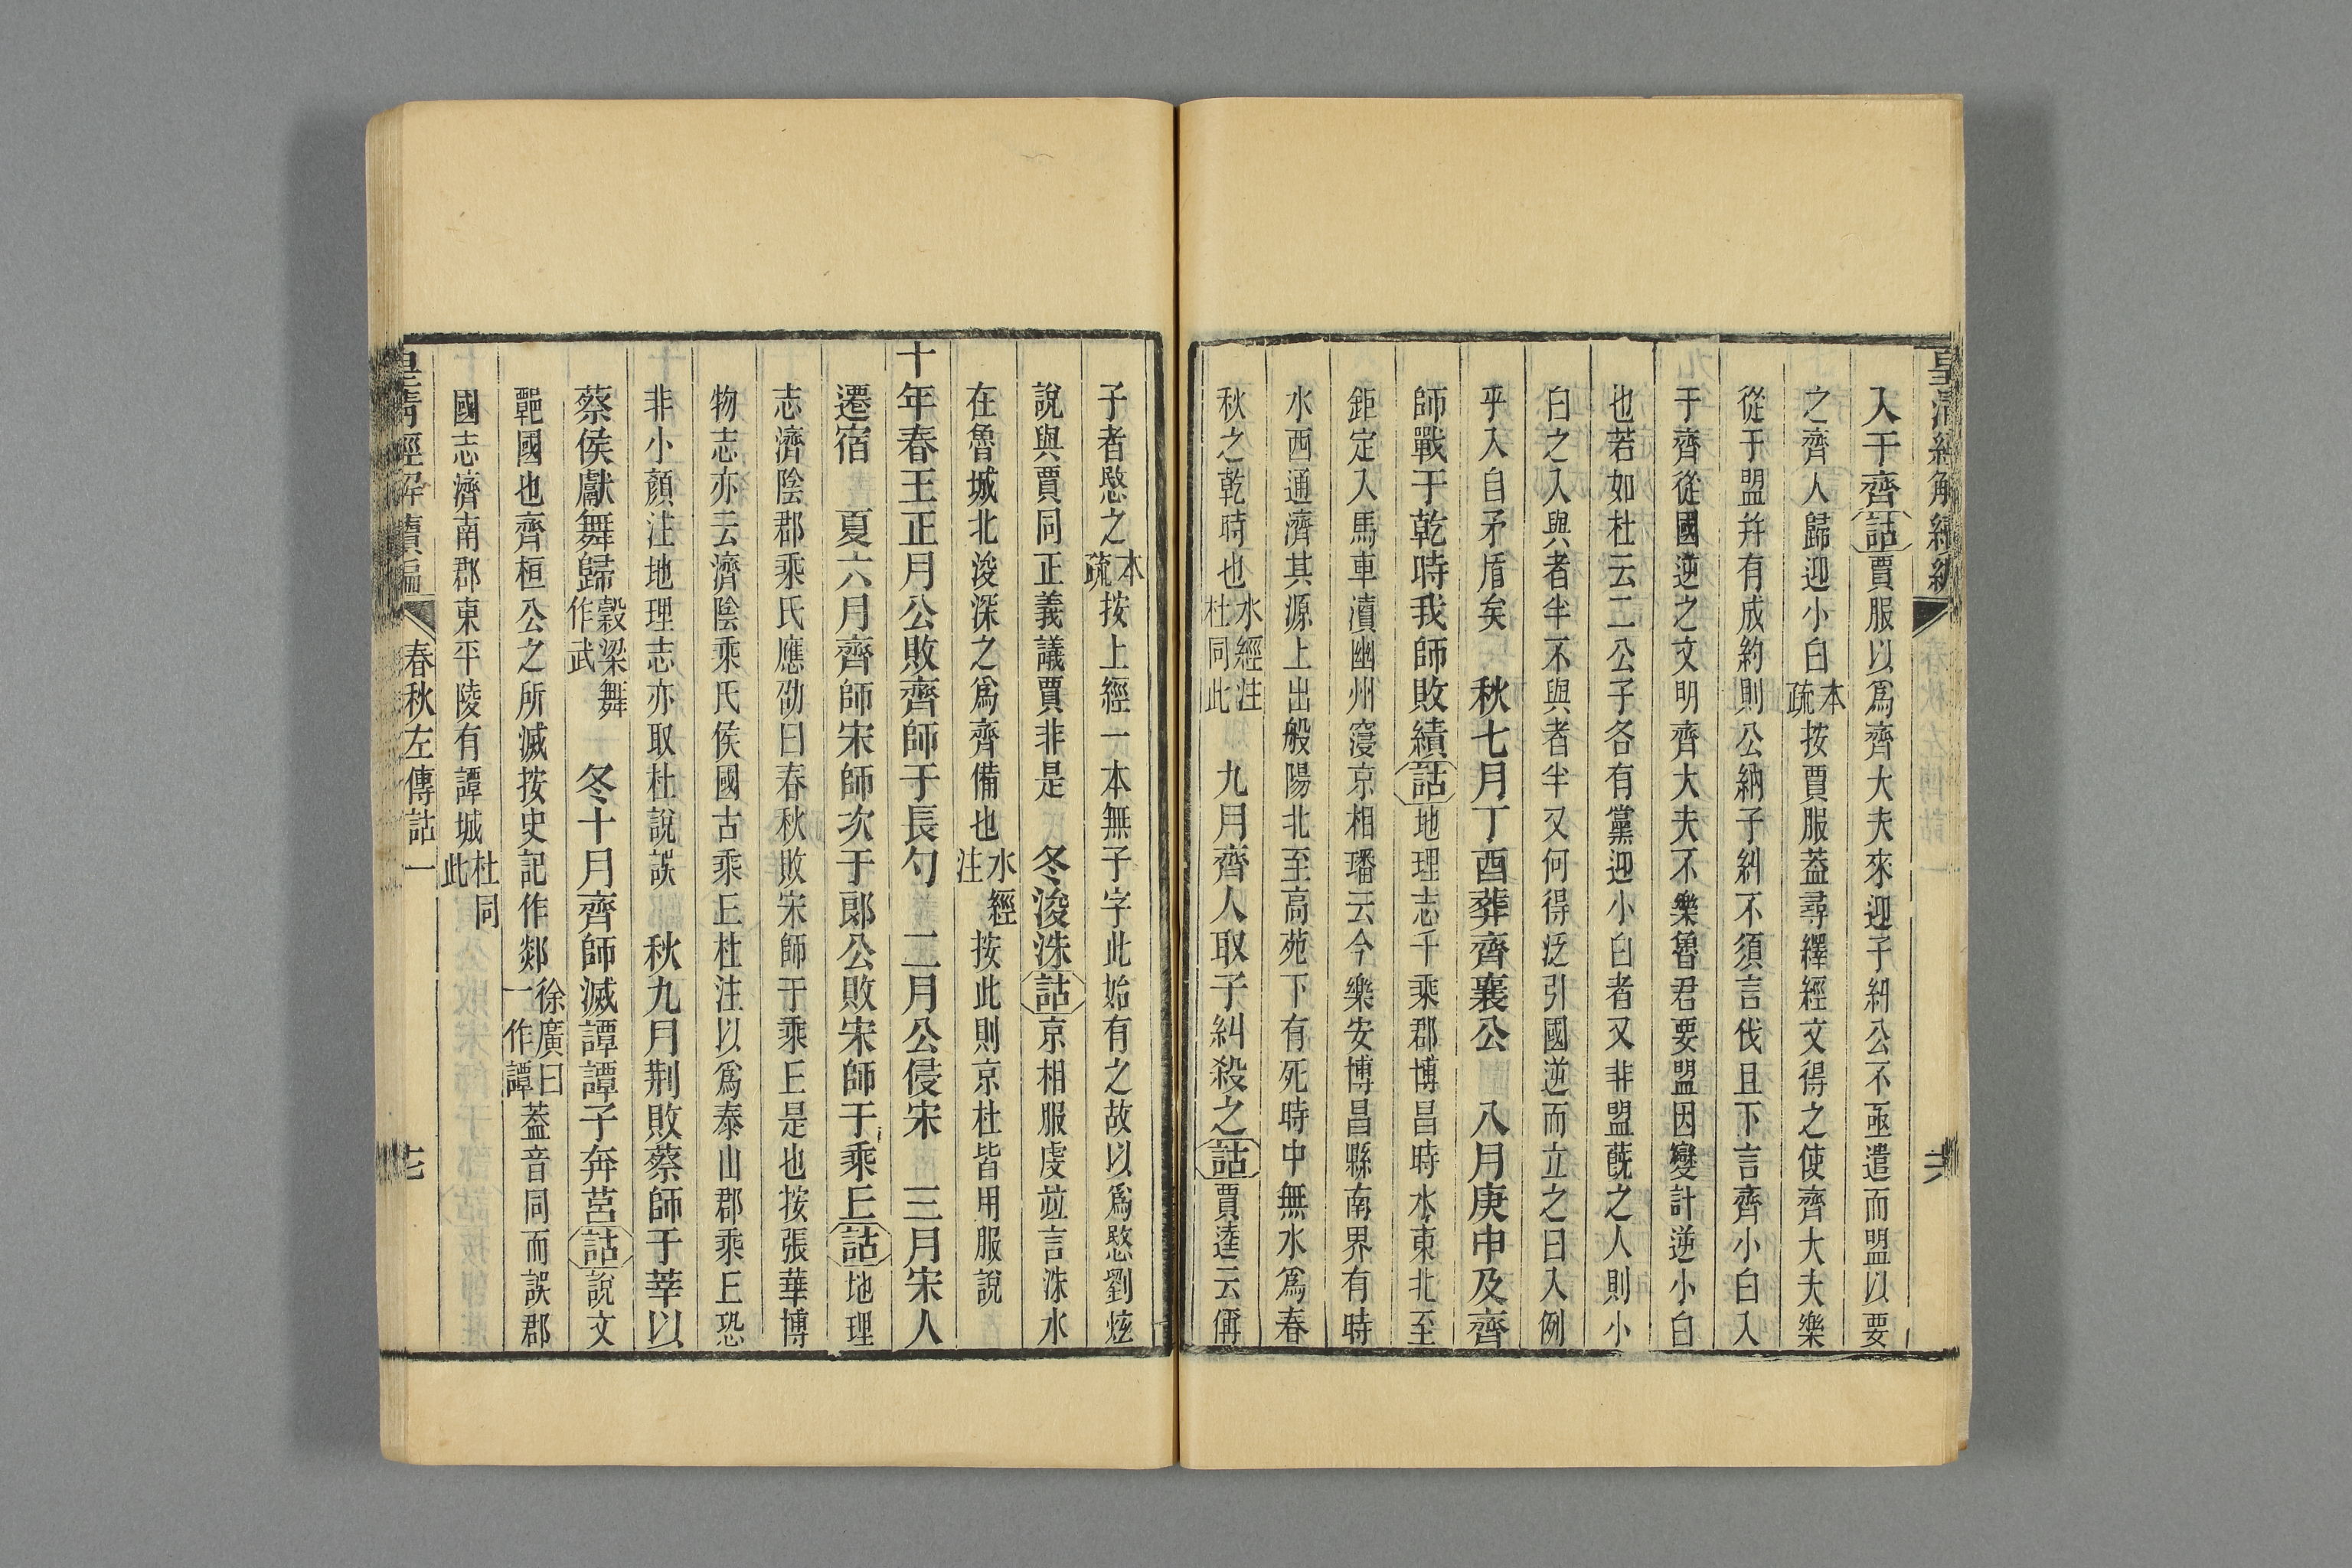 皇清經解續編
入于齊詁賈服以爲齊大夫來迎子糾公不亟遣而盟以要
之齊人歸迎小白本疏按賈服葢尋繹經文得之使齊大夫樂
從于盟幷有成約則公納子糾不須言伐且下言齊小白入
于齊從國逆之文明齊大夫不樂魯君要盟因變計逆小白
也若如杜云二公子各有黨迎小白者又非盟蔇之人則小
白之入與者半不與者半又何得泛引國逆而立之曰入例
乎入自矛盾矣　秋七月丁酉葬齊襄公　八月庚申及齊
師戰于乾時我師敗績詁地理志千乘郡博昌時水東北至
鉅定入馬車瀆幽州寖京相璠云今樂安博昌縣南界有時
水西通濟其源上出般陽北至高苑下有死時中無水爲春
秋之乾時也水經注杜同此　九月齊人取子糾殺之詁賈逵云偁
子者愍之本疏按上經一本無子字此始有之故以爲愍劉炫
說與賈同正義議賈非是　冬浚洙詁京相服虔竝言洙水
在魯城北浚深之爲齊備也水經注按此則京杜皆用服說
十年春王正月公敗齊師于長勺　二月公侵宋　三月宋人
遷宿　夏六月齊師宋師次于郎公敗宋師于乘丘詁地理
志濟陰郡乘氏應劭曰春秋敗宋師于乘丘是也按張華博
物志亦云濟陰乘氏侯國古乘丘杜注以爲泰山郡乘丘恐
非小顏注地理志亦取杜說誤　秋九月荆敗蔡師于莘以
蔡侯獻舞歸穀梁舞作武　冬十月齊師滅譚譚子奔莒詁說文
䣜國也齊桓公之所滅按史記作郯徐廣曰一作譚葢音同而誤郡
國志濟南郡東平陵有譚城杜同此
皇清經解續編　春秋左傳詁一